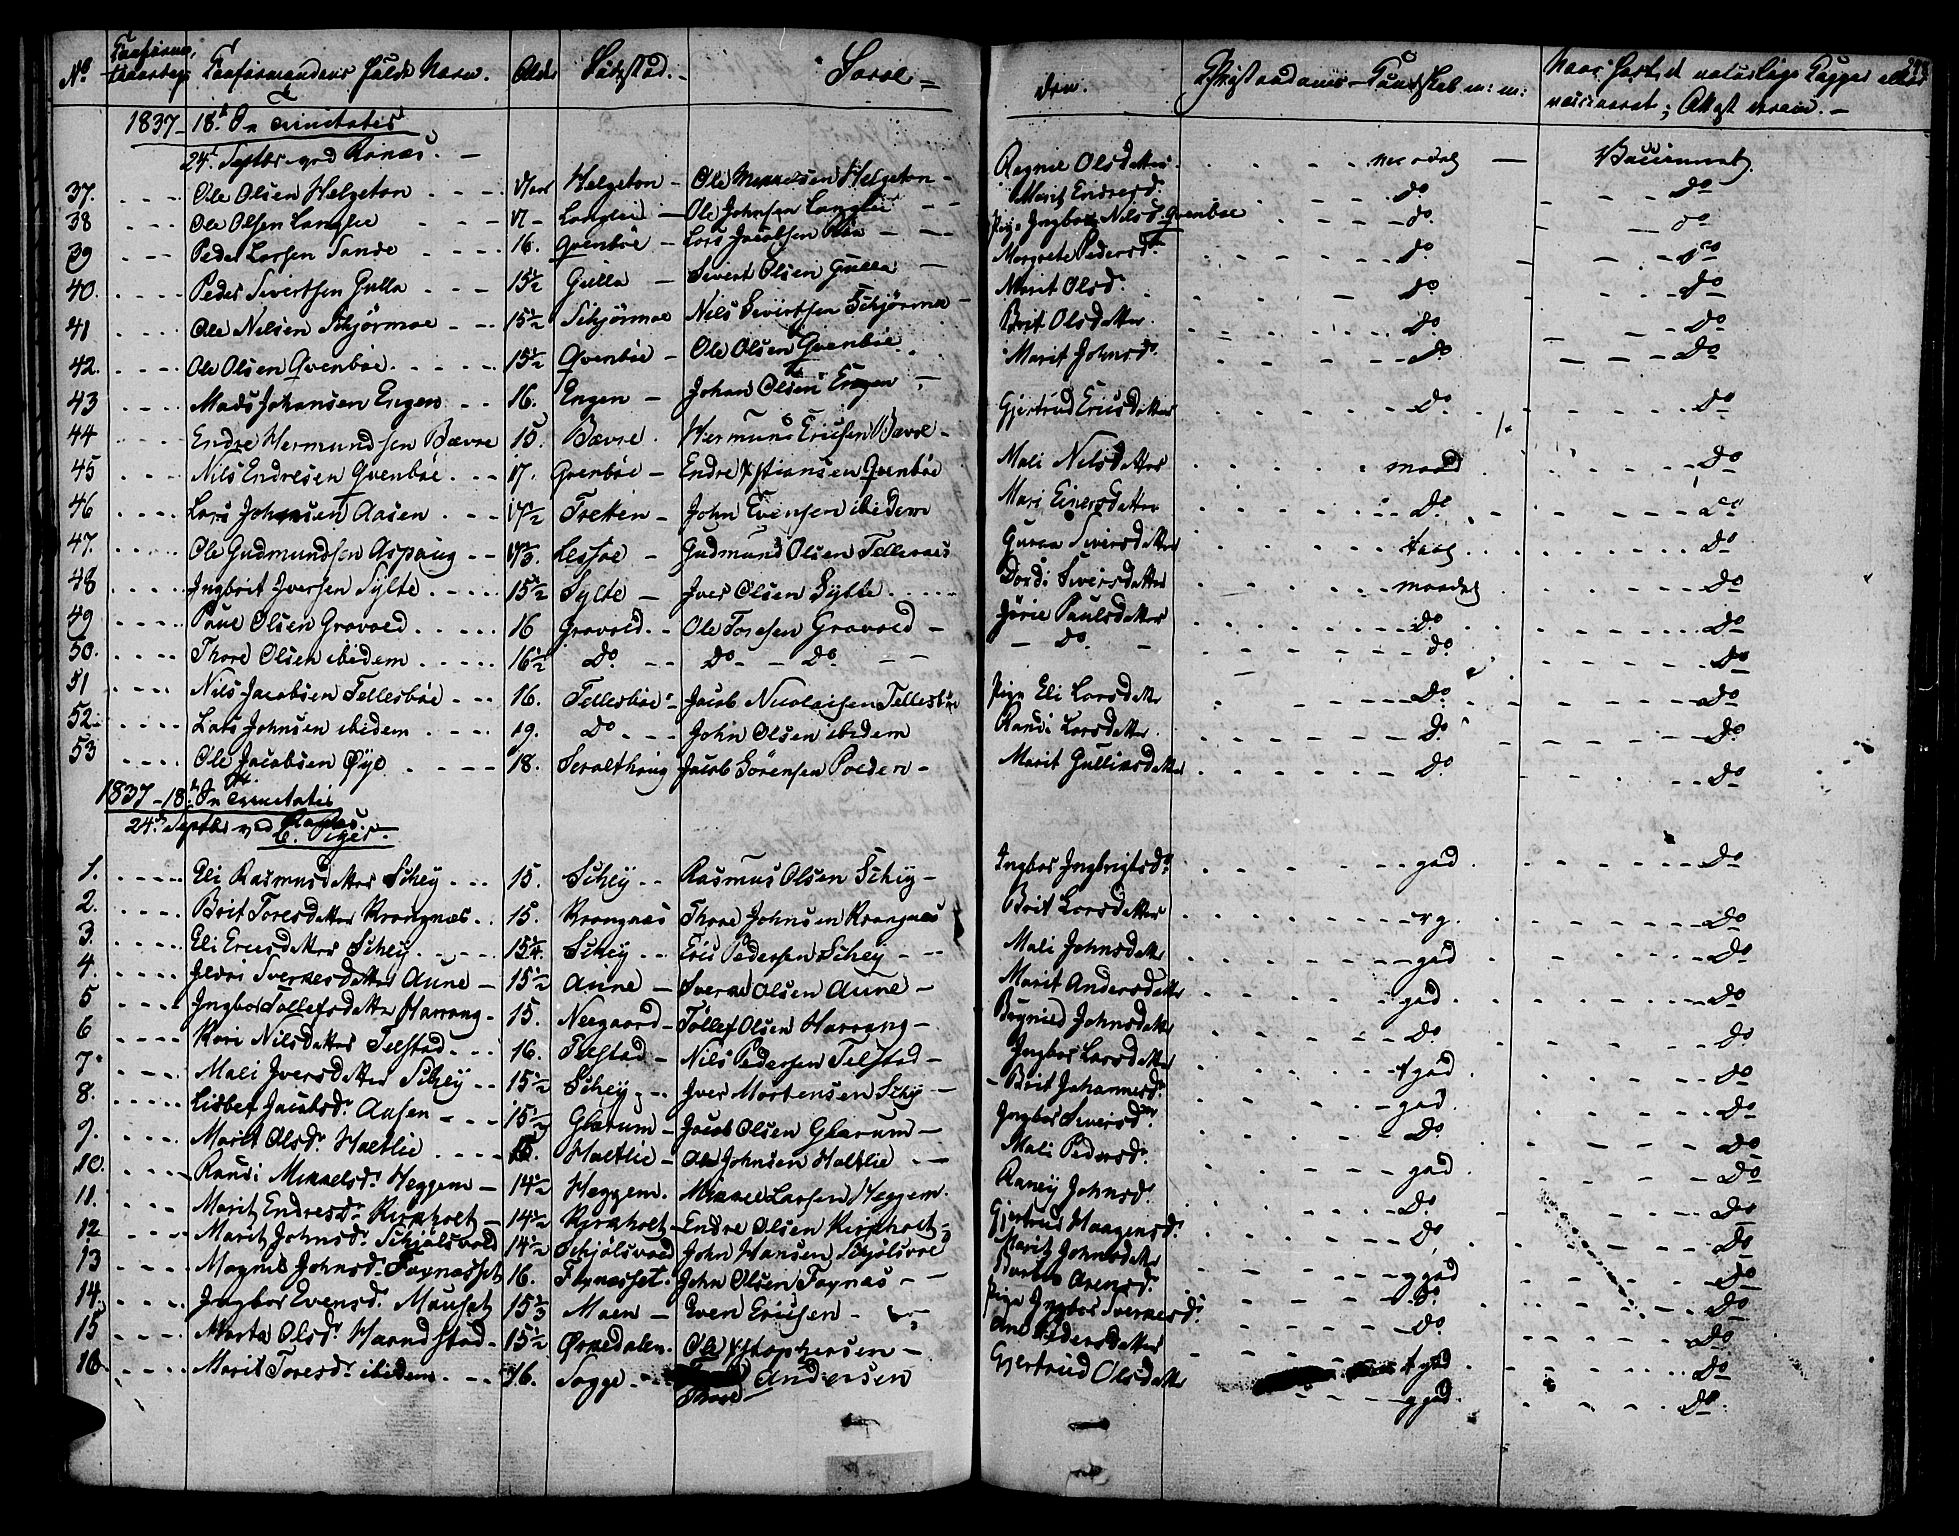 No Confirmandens fulde Navn. Alder Födested. Foræl= dre. Christendoms-Kundskab m: m: Naar havt de naturlige Kopper eller vaccineret; Attest derom. -
1837 - 18de Sn Trinitatis
24de Septbr ved Ranæs. -
37. Ole Olsen Helgeton Helgeton - Ole Helgeton - Ragnil Olsdatter Vaccineret
38 Ole Olsen Langlie 17 - Langlie - Ole Johnsen Langlie Marit Endresd. do do
39 Peder Larsen Sande 16. Qvenböe - Lars Jacobsen Pige Ingbor Nilsd. Qvenböe do do
40. Peder Sivertsen Gulla 15½ Gulla - Sivert Olsen Gulla Margrete Pedersdr do do
41 Ole Nilsen Schjörmoe 15½ Schjörmoe Nils Sivertsen Schjörmoe Marit Olsd. do do
42. Ole Olsen Qvenböe 15½ Qvenböe - Ole Olsen Qvenböe Brit Olsdatter do do
43 Mads Johansen Engen 16. Engen - Johan Olsen Engen Marit Johnsd. do do
44 Endre Hermundsen Bævre 15. Bævre. Hermund Ericsen Bævre - Gjertrud Ericsdatter do do
45 Nils Endresen Qvenböe 17. Qvenböe - Endre Xstiansen Qvenböe Mali Nilsdatter maad do
46 Lars Johnsen Aasen 17½ Tretten - John Evensen ibidem Mari Einersdatter do do
47. Ole Gudmundsen Aspaug Lesjöe - Gudmund Olsen Tellenæs Guroa Siversdatter do
48 Ingbrit Iversen Sylte 15½ Sylte - Iver Olsen Sylte Dordi Siversdatter maadel do
49 Paul Olsen Gravold 16 Gravold Ole Toresen Gravold - Jörie Paulsdatter do do
50. Thore Olsen ibidem 16½ do do - do - do - do do
51 Nils Jacobsen Tellesböe 16. Tellesböe - Jacob Nicolaisen Tellesböe Pige Eli Larsdatter do do
52. Lars Johnsen ibidem 19. do John Olsen ibidem Randi Larsdatter do do
53 Ole Jacobsen Øye 18. Jacob Sörensen Marit Gulliksdatter do do
1837 - 18de Sn Trinitatis
24de Septbr ved Ranæs.
C. Piger.
1. Eli Rasmusdatter Schey 15. Schey Rasmus Olsen Schey - Ingbor Ingbrigtsdr god do
2. Brit Toresdatter Krongnæs 15. Krongnæs Thore Johnsen Krongnæs Brit Larsdatter mg. do
3. Eli Ericsdatter Schey 15¼ Schey Eric Pedersen Schey Mali Johnsdatter god do
4. Sverresdatter Aune - 15½ Aune - Sverre Olsen Aune - Marit Andersdatter god do
5 Ingbor Tollefsdatter Harrang 15. Neegaard - Tollef Olsen Harrang - Bergnild Johnsdatter do do
6 Kari Nilsdatter Telstad 16. Telstad - Nils Pedersen Telstad - Ingbor Larsdatter tgod do
7. Mali Iversdatter Schey 15½ Schey Iver Mortensen Schey - Brit Johannesdr god do
8. Lisbet Jacobsdr Aasen 15½ Glærum - Jacob Olsen Glærum - Ingbor Siversdr do do
9. Marit Olsdr Haltlie 15. Haltlie - Ole Johnsen Haltlie Mali Pedersdr god do
10. Randi Mikkelsdr Heggem - 14½ Heggem. Mikkel Larsen Heggem. Raney Johnsdr do do
11. Marit Endresdr Kirkholt - 14½ Kirkholt - Endre Olsen Kirkholt Gjertrud Haagensdr do do
12 Marit Johnsdr Schjölsvold 14½ Schjölsvold John Hansen Schjölsvold Marit Johnsdatter ggod do
13 Magnil Johnsdr Foxnæsset 16. Foxnæsset. John Olsen Foxnæs Barbro Arensd. do do
14. Ingbor Evensd. Mauset 15⅓ Moen - Even Ericsen Pige Ingbor Sverresdr do do
15 Marta Olsdr Haandstad 15½ Ørkedalen. Ole Xstophersen - Ane Pedersdatter tgod do
16 Marit Toresdr ibidem 16. Sogge Thore Andersen Gjertrud Olsdatter ggod do